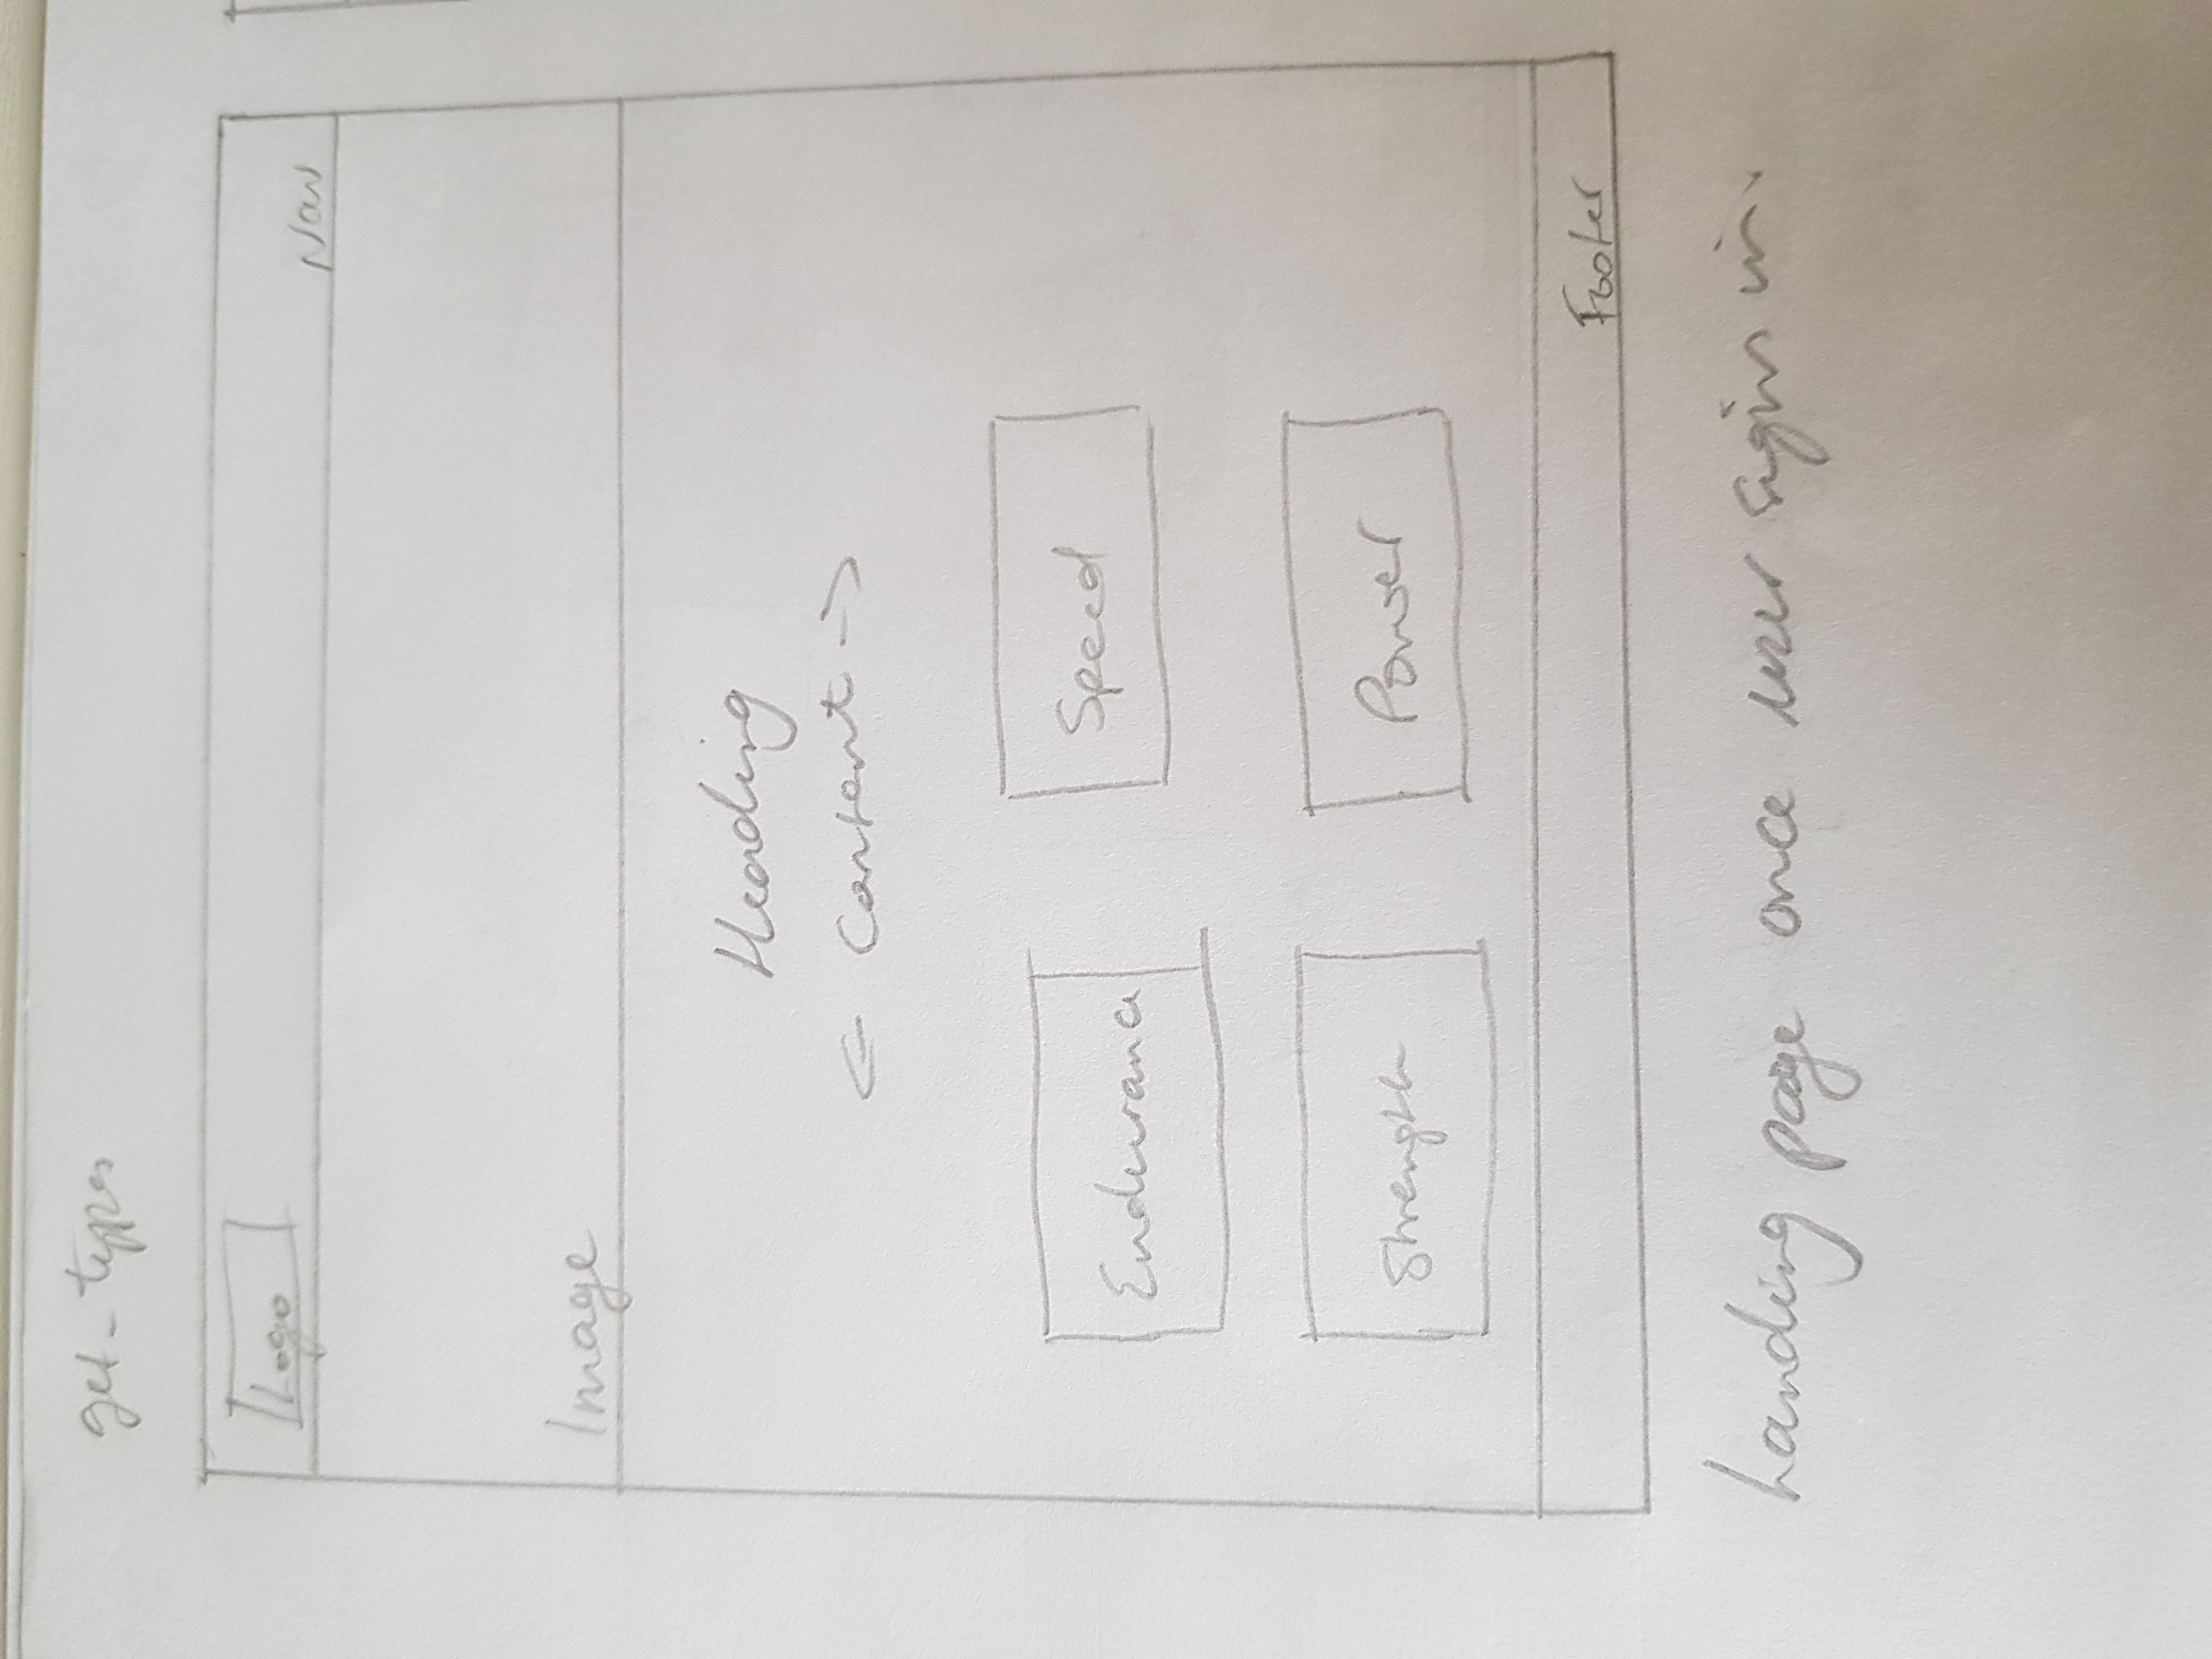 get_types
Logo
Nav
Image
Heading
<- Content ->
Endurance
Speed
Strength
Power
Footer
Landing page once user signs in.